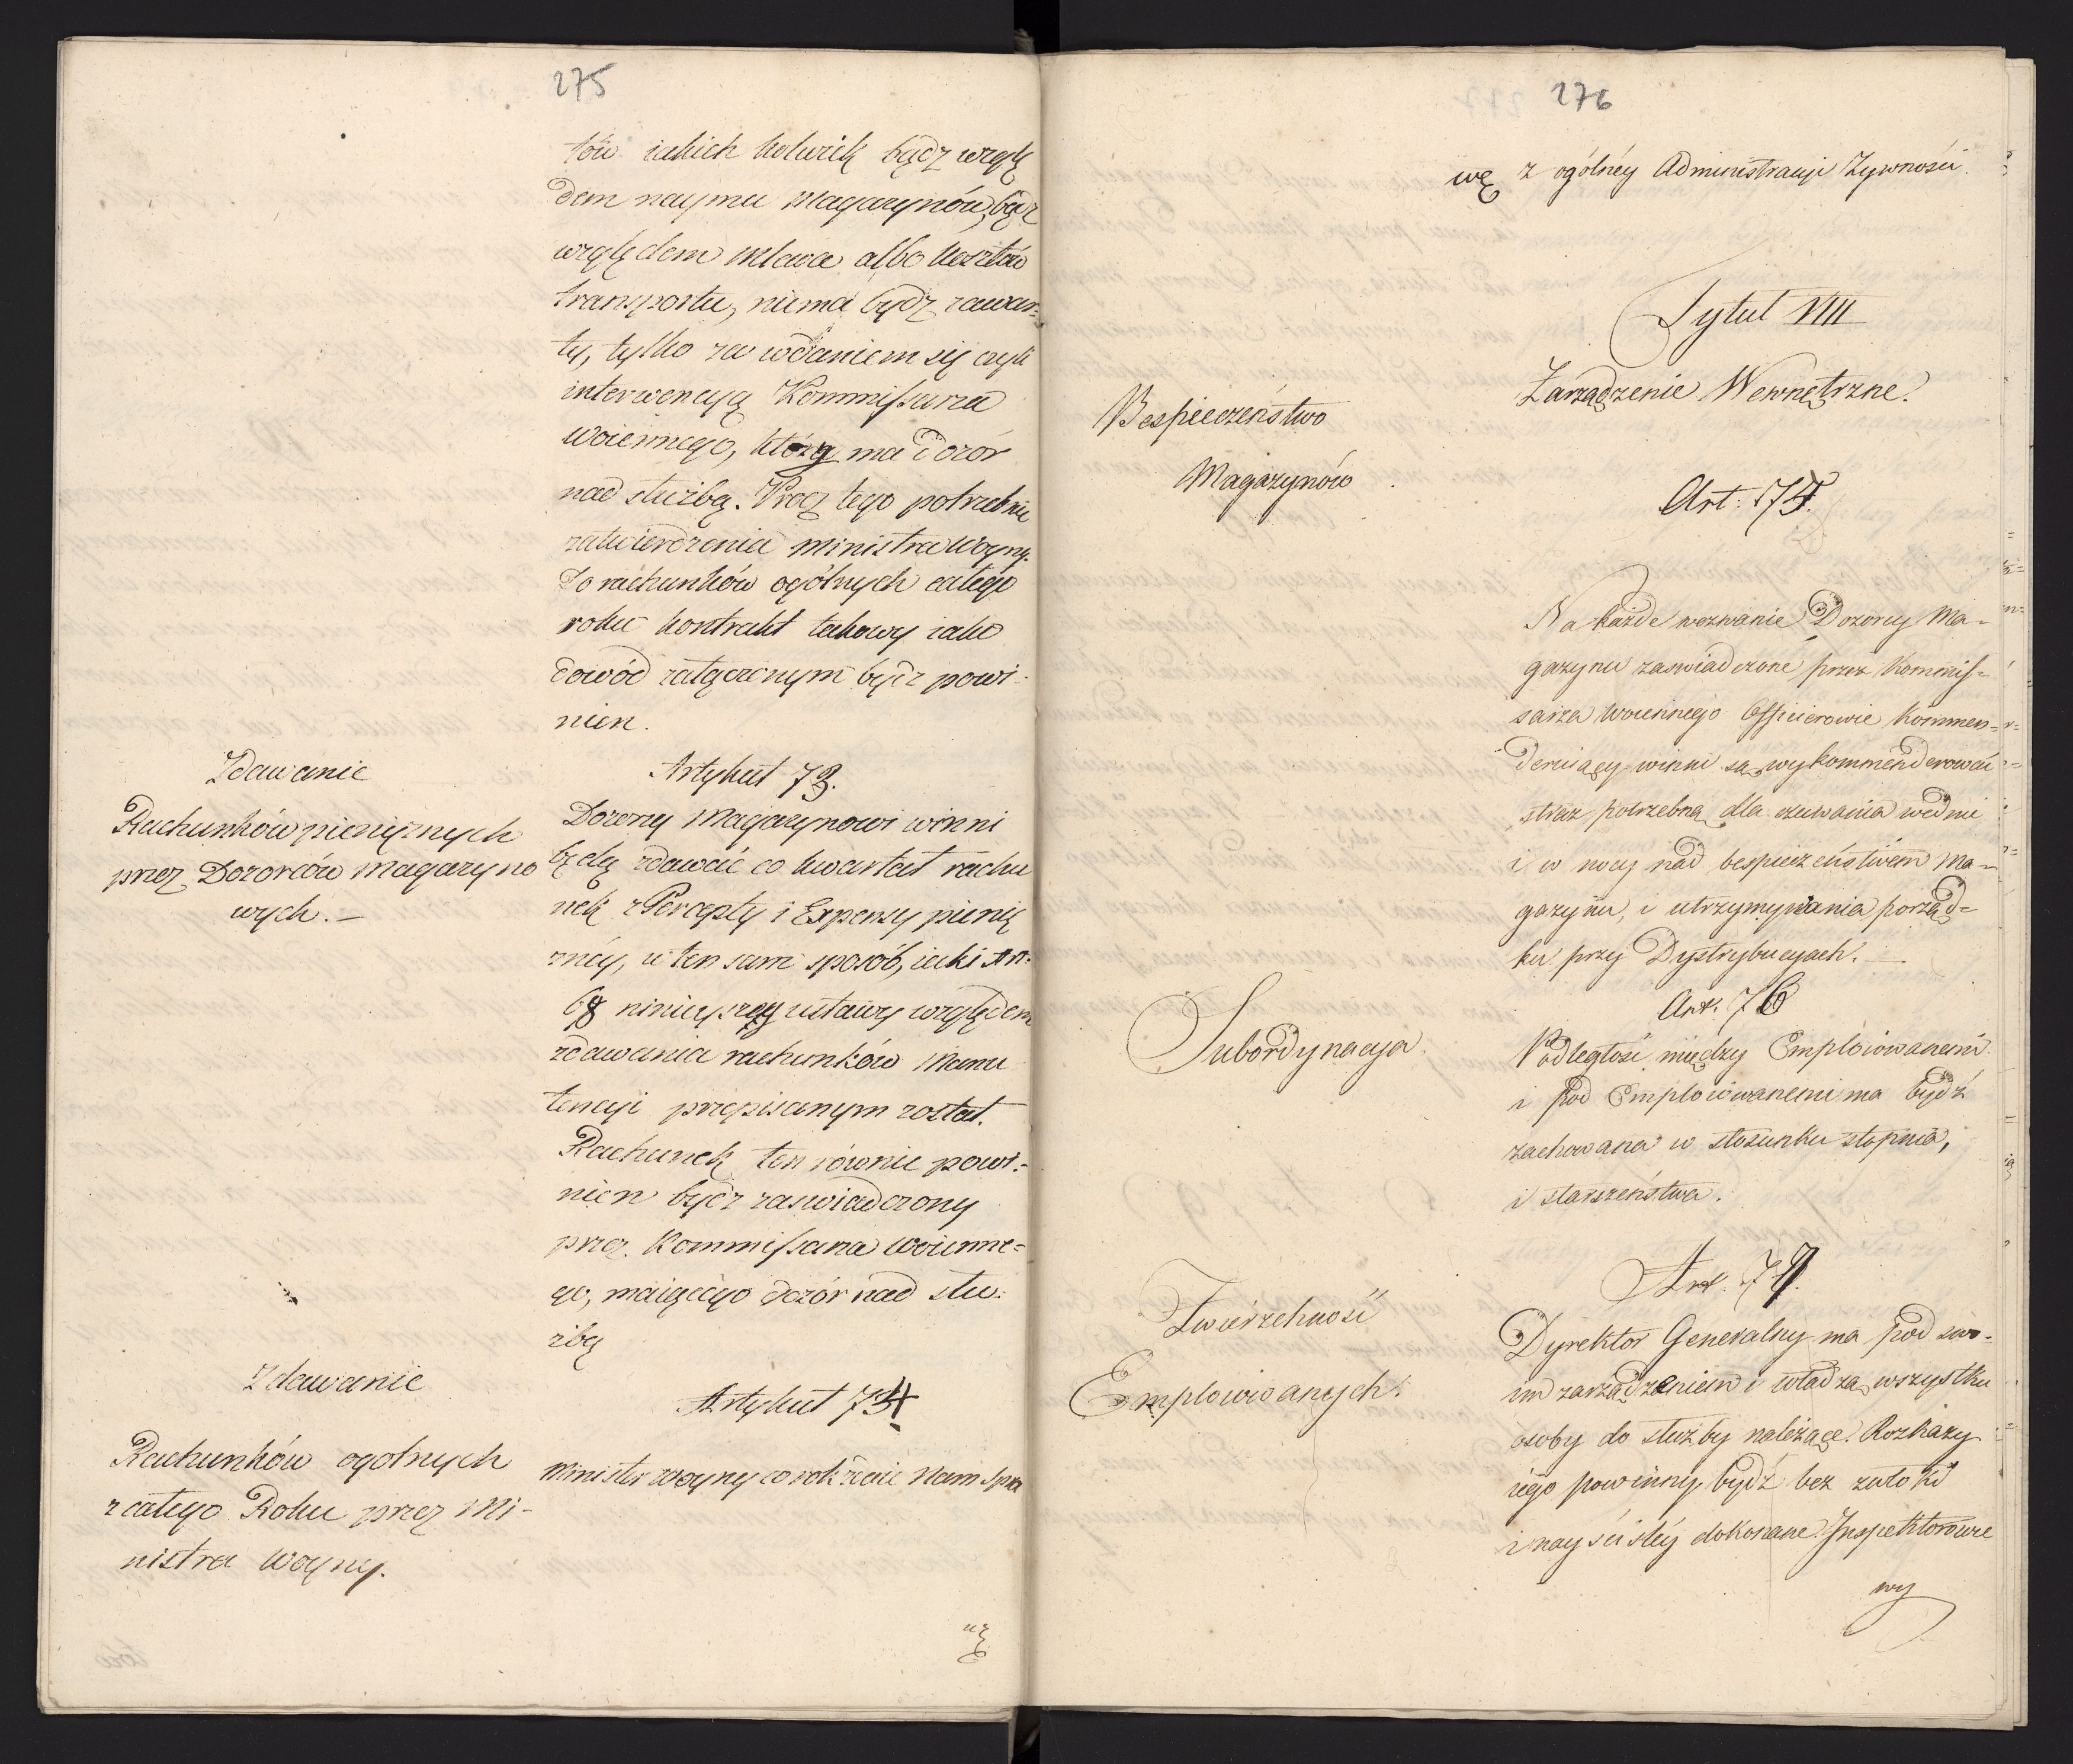 275
tów iakich kolwiek bądz wzglę
dem naymu Magazynów, bądz
względem mlewa albo kosztów
transportu, niema bydz zawar=
ty, tylko za wdaniem się czyli
interwencyą Kommissarza
woiennego, który ma dozór
nad służbą. Procz tego potrzebnie
zatwierdzenia Ministra Woyny.
Do rachunków ogólnych całego
roku kontrakt takowy iako
dowód załączonym bydz powi-
nien.
Zdawanie
Rachunków pieniężnych
przez Dozorców Magazyno
wych. –
Artykuł 73.
Dozorcy Magazynowi winni
będą zdawać co kwartał rachu
nek z Percepty i Expensy pienię
żnéy, w ten sam sposób, iaki Art.
68 ninieyszey ustawy względem
zdawania rachunków Manu
tencyi przepisanym został.
Rachunek ten równie powi=
nien bydz zaswiadczony
przez Kommissarza woienne=
go, maiącego dozór nad słu=
żbą
Zdawanie
Rachunków ogolnych
z całego Roku przez Mi-
nistra Woyny.
Artykuł 74
Minister Woyny co rok zdaie Nam spra
wę
276
wę z ogólnéy Administracyi Żywności.
Tytuł VIII
Zarządzenie Wewnętrzne.
Bespieczeństwo
Magazynów
Art. 75.
Na każde wezwanie Dozorcy Ma-
gazynu zaswiadczone przez Kommis=
sarza Woiennego Officierowie kommen=
deruiący winni są wykommenderować
straż potrzebną dla czuwania wednie
i w nocy nad bespieczeństwem Ma-
gazynu, i utrzymywania porząd=
ku przy Dystrybucyach. –
Subordynacya
Art. 76
Podległość między Emploiowanemi
i pod Emploiowanemi ma bydź
zachowana w stosunku stopnia,
i starszeństwa.
Zwierzchność
Emploiowanych.
Art. 77.
Dyrektor Generalny ma pod swo-
im zarządzeniem i władzą wszystkie
osoby do służby należące. Rozkazy
iego powinny bydź bez zwłoki
i nayściśléy dokonane. Inspektorowie
wy